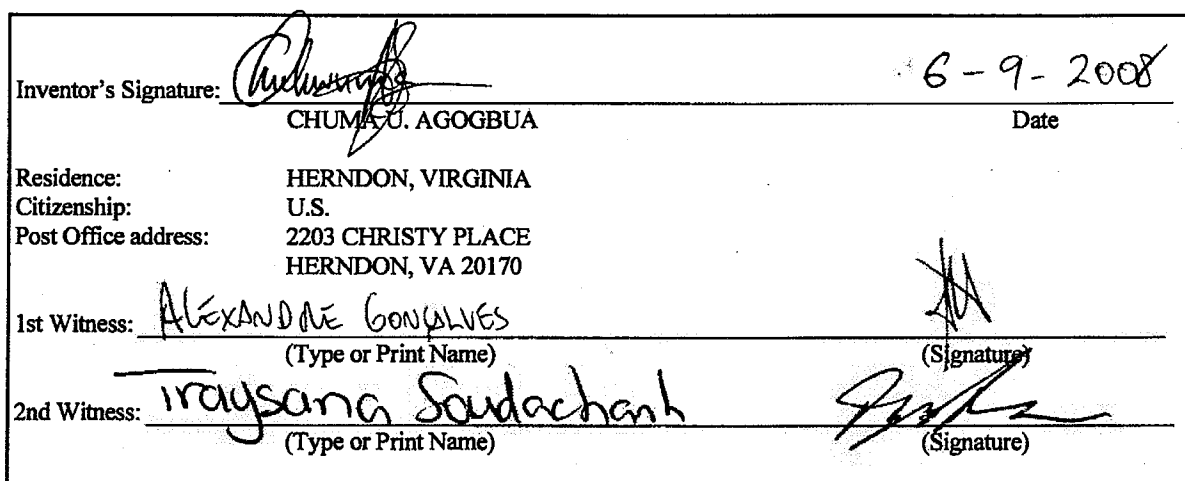 Inventor's Signature: 6-9-2008
CHUMA U. AGOGBUA Date
Residence: HERNDON, VIRGINIA
Citizenship: U.S.
Post Office address: 2203 CHRISTY PLACE
HERNDON, VA 20170
1st Witness: ALEXANDRE GONÇALVES
(Type or Print Name) (Signature)
2nd Witness: Traysana Soudachanh
(Type or Print Name) (Signature)